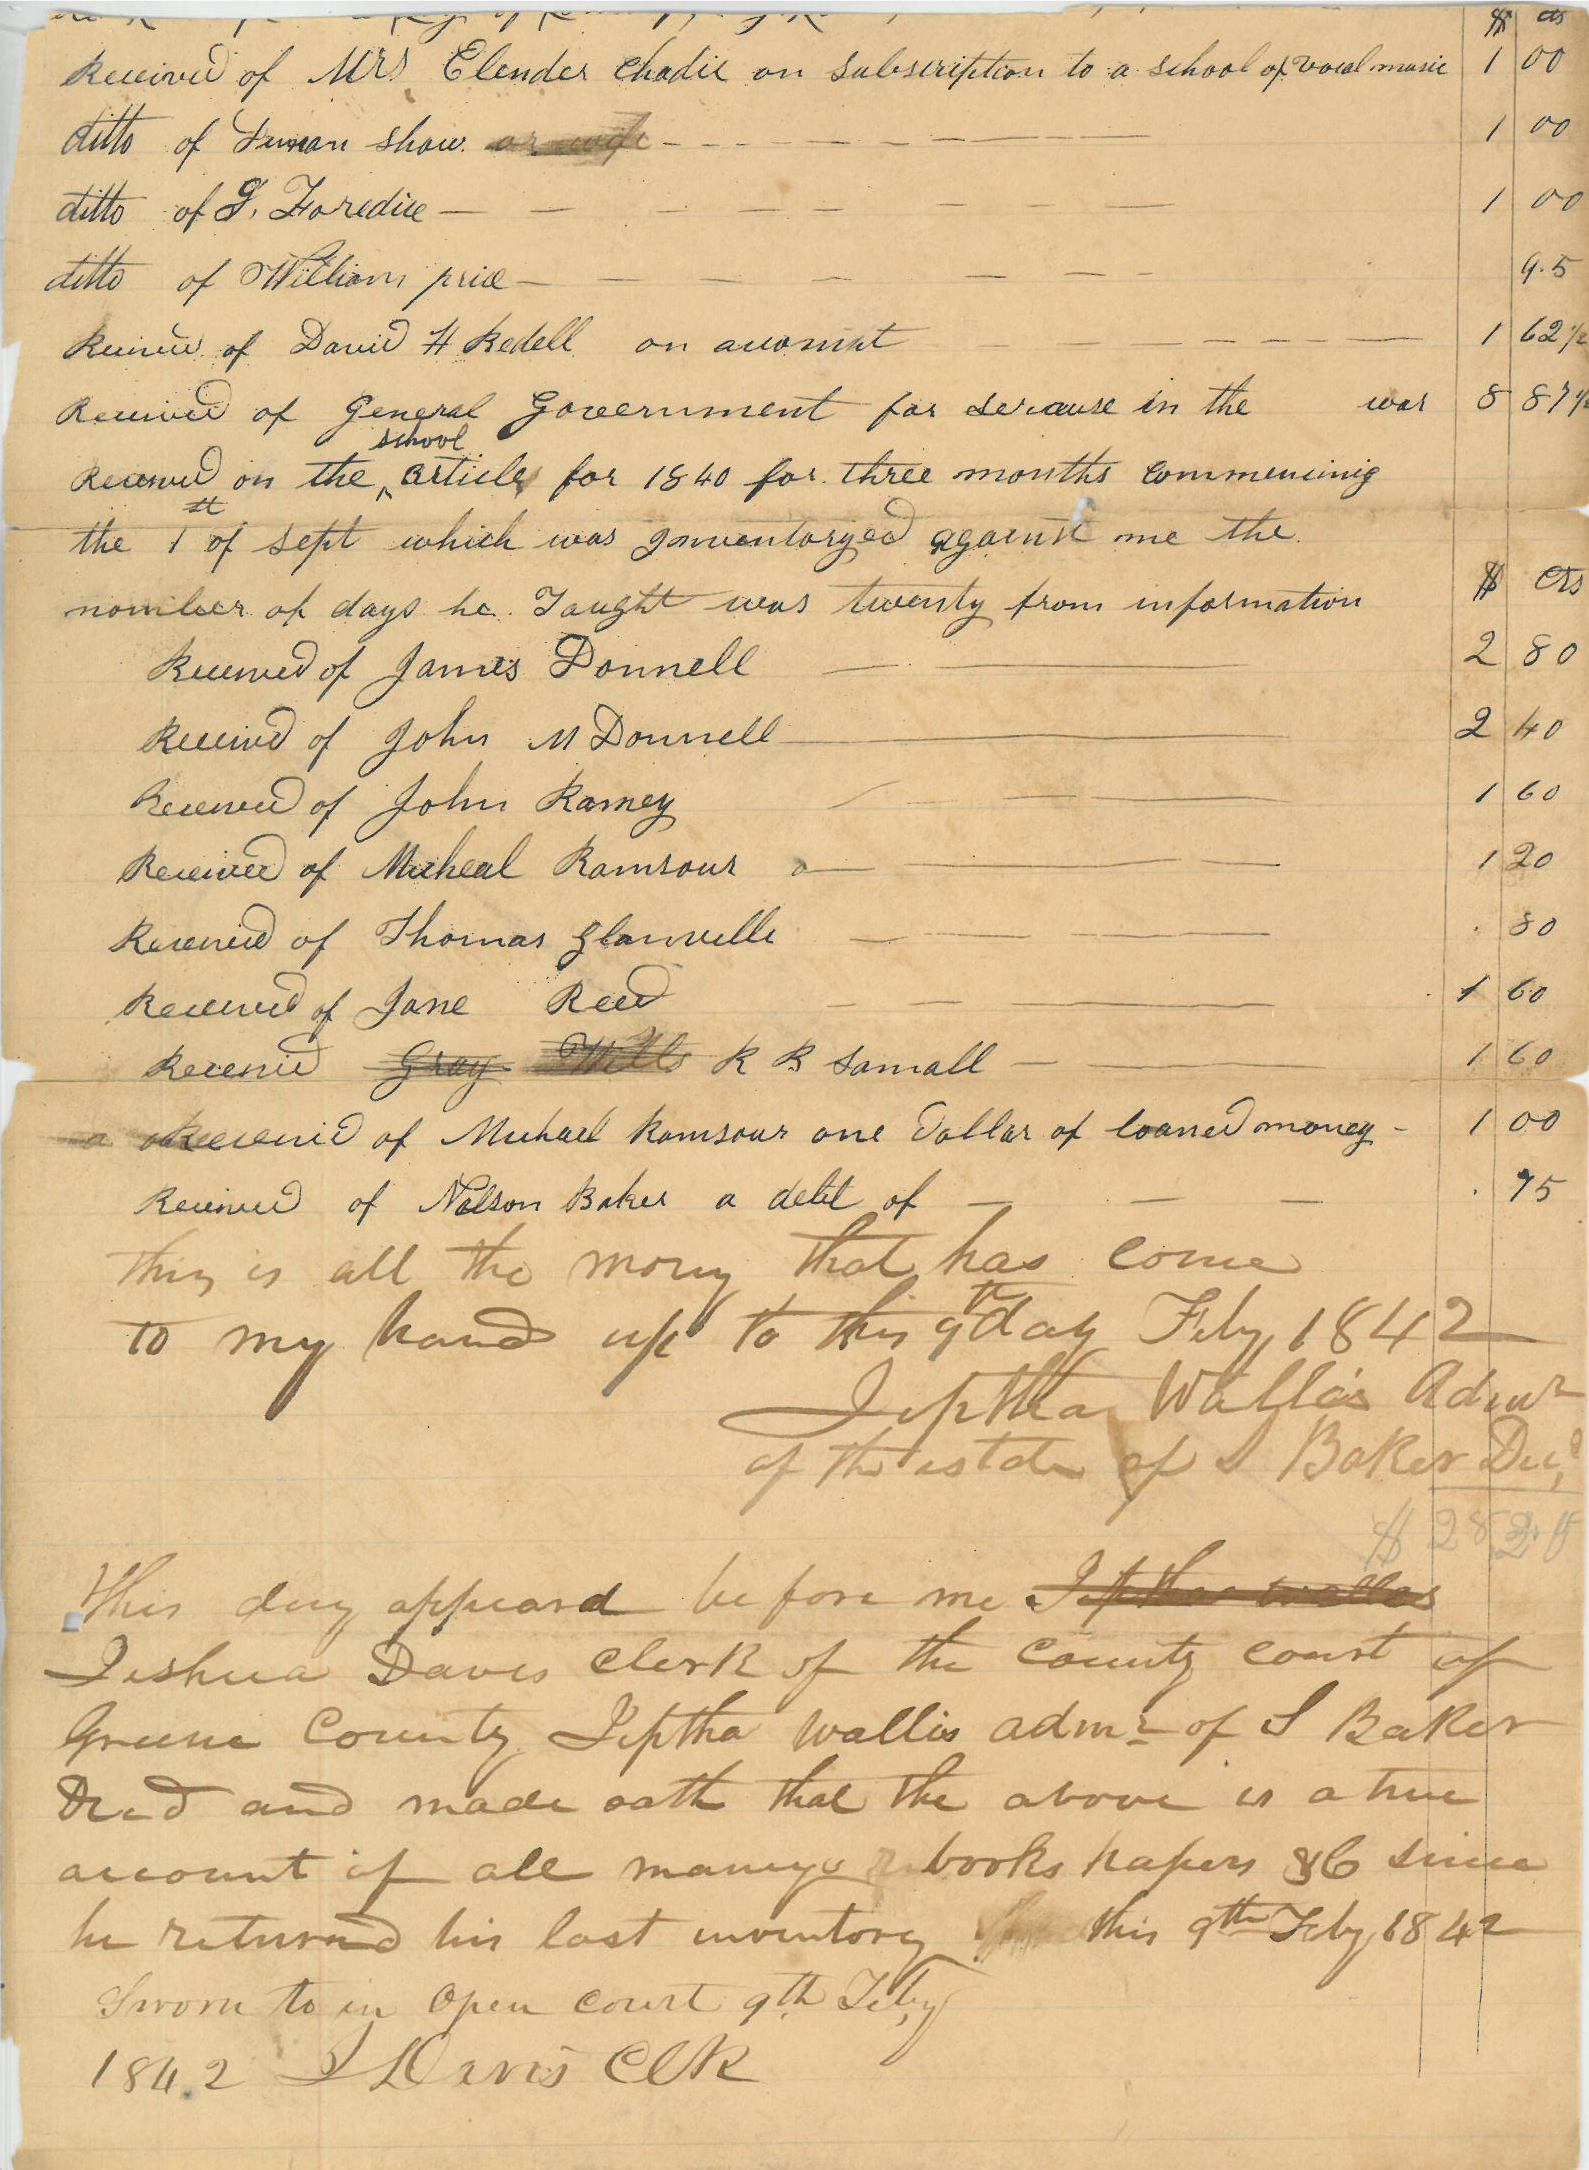 $ cts
Received of Mrs Elender Chadic on subscription to a school of vocal music 1 00
ditto of Duncan Shaw. or wife 1 00
ditto of G. Foredice 1 00
ditto of William price 9.5
Received of David H Redell on account 1 62 1/2
Received of General Government for servause in the war 8 87 1/2
school
Received on the ^ article for 1840 for three months commencinig
the 1st of Sept which was Inventoryed against me the
nomber of days he Taught was twenty from information $ cts
Received of James Donnell 2 80
Received of John M Donnell 2 40
Received of John Ramey 1 60
Received of Micheal Ramsour 1 20
Received of Thomas Glanville . 80
Received of Jane Reed 1 60
Received Gray Wills R B Samall 1 60
Received of Michael Ramsour one Dollar of loaned money 1 00
Received of Nelson Baker a debt of . 75
This is all the mony that has come
to my hand up to this 9th day Feby 1842
Jeptha Wallis Admr
of the estate of S Baker Decd
$ 28
This day appeard before me Jeptha Wallas
Jeshua Davis Clerk of the County court of
Greene County Jeptha Wallis admr of S Baker
Decd and made oath that the above is a true
account of all maneys books papers &C since
he returnd his last inventory this 9th Feby 1842
Sworn to in Open Court 9th Feby
1842 J Davis Clk